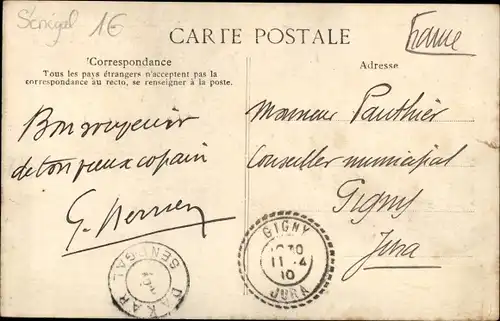 Sénégal 16
CARTE POSTALE
France
Correspondance
Tous les pays étrangers n'acceptent pas la
correspondance au recto, se renseigner à la poste.
Adresse
Bon souvenir
de ton vieux copain
G.
Monsieur Pauthier
Conseiller municipal
Gigny
Jura
GIGNY
11 4
10
JURA
DAKAR
SENEGAL